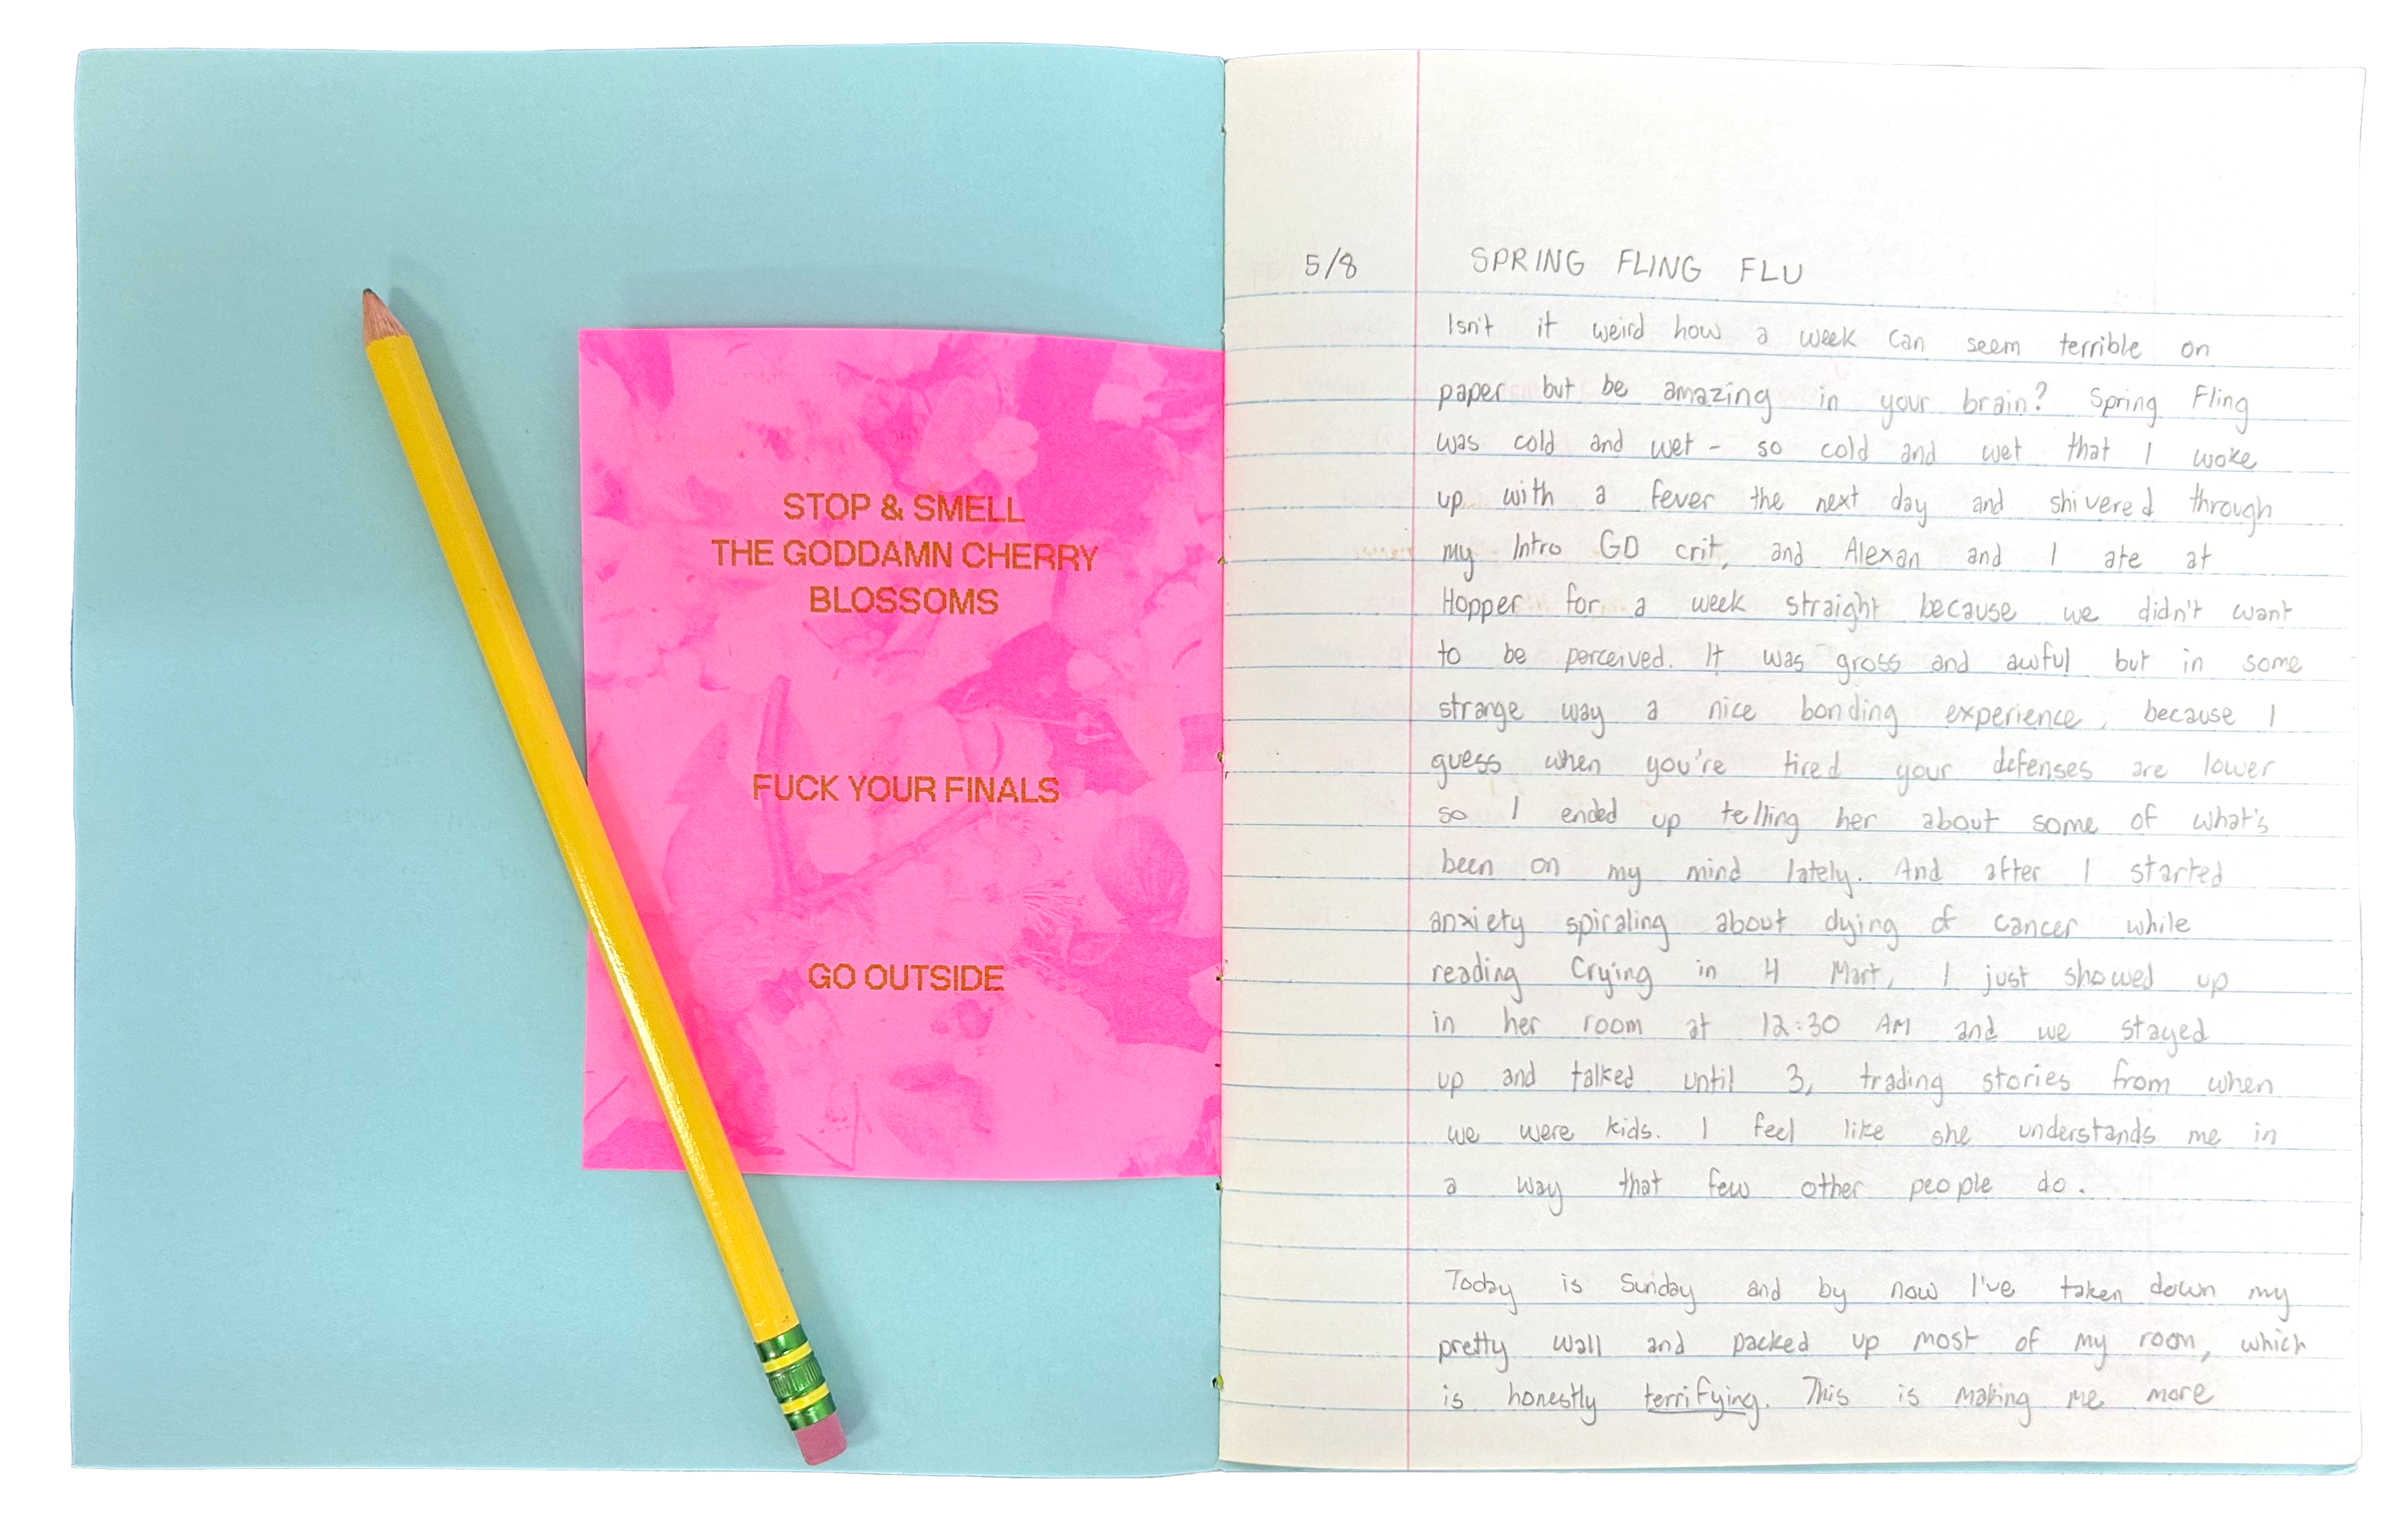 STOP & SMELL
THE GODDAMN CHERRY
BLOSSOMS
FUCK YOUR FINALS
GO OUTSIDE
5/8 SPRING FLING FLU
Isn't it weird how a week can seem terrible on
paper but be amazing in your brain? Spring Fling
was cold and wet - so cold and wet that I woke
up with a fever the next day and shivered through
my Intro GD crit, and Alexan and I ate at
Hopper for a week straight because we didn't want
to be perceived. It was gross and awful but in some
strange way a nice bonding experience, because I
guess when you're tired your defenses are lower
so I ended up telling her about some of what's
been on my mind lately. And after I started
anxiety spiraling about dying of cancer while
reading Crying in H Mart, I just showed up
in her room at 12:30 AM and we stayed
up and talked until 3, trading stories from when
we were kids. I feel like she understands me in
a way that few other people do.
Today is Sunday and by now I've taken down my
pretty wall and packed up most of my room, which
is honestly terrifying. This is making me more